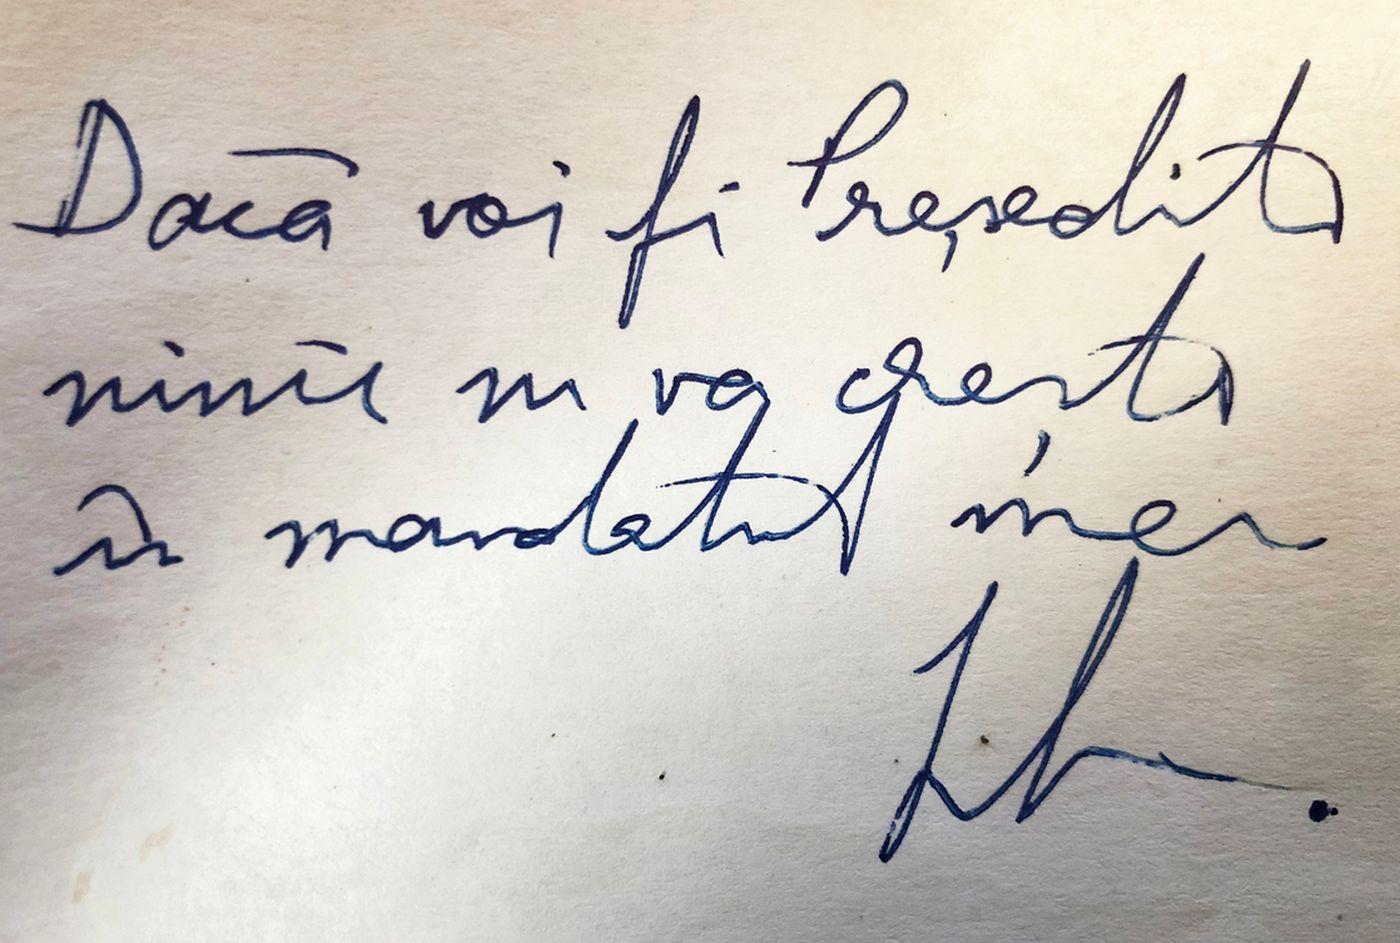 Dacă voi fi Președinte
nimic nu va crește
în mandatul meu